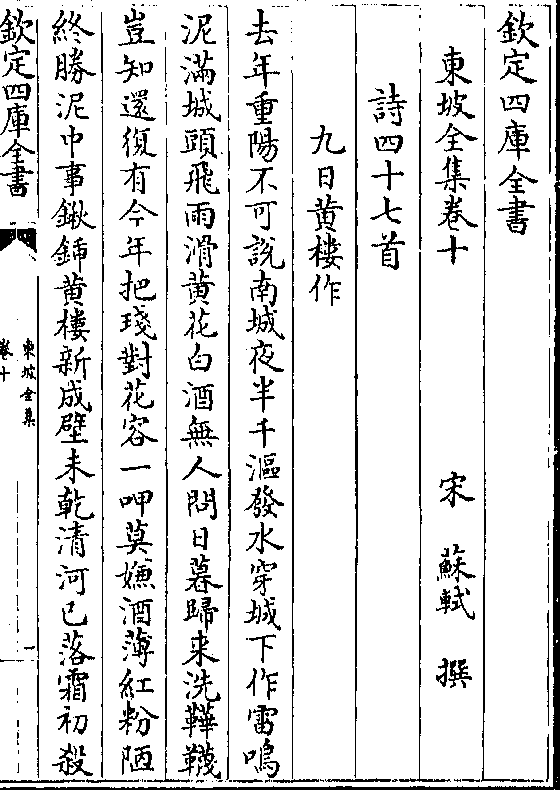 欽定四庫全書
東坡全集卷十
宋 蘇軾 撰
詩四十七首
九日黄樓作
去年重陽不可說南城夜半千漚發水穿城下作雷鳴
泥滿城頭飛雨滑黄花白酒無人問日暮歸来洗鞾韈
豈知還復有今年把琖對花容一呷莫嫌酒薄紅粉陋
終勝泥中事鍬鍤黄樓新成壁未乾清河已落霜初殺
欽定四庫全書
東坡全集
卷十
一